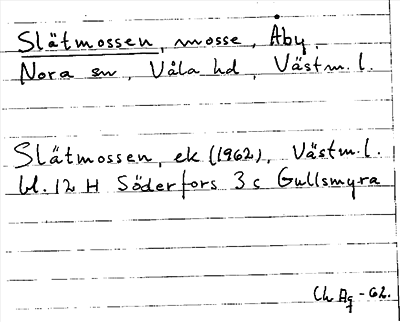 Slätmossen, mosse, Åby.
Nora sn, Våla hd, Västm. l.
Slätmossen, ek (1962), Västm. l.
bl. 12 H Söderfors 3 c Gullsmyra
Ch Ag -62.